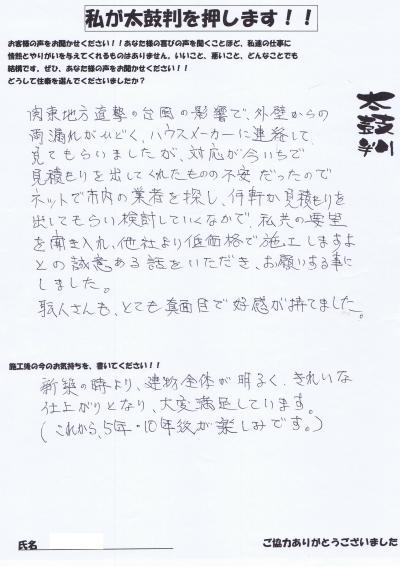 私が太鼓判を押します！！
お客様の声をお聞かせください！！あなた様の喜びの声を聞くことほど、私達の仕事に
情熱とやりがいを与えてくれるものはありません。いいこと、悪いこと、どんなことでも
結構です。ぜひ、あなた様の声をお聞かせください！！
どうして住泰を選んでくださいましたか？
太鼓判
関東地方直撃の台風の影響で、外壁からの
雨漏れがひどく、ハウスメーカーに連絡して、
見てもらいましたが、対応が今いちで
見積もりを出してくれたものの不安だったので
ネットで市内の業者を探し、何軒か見積もりを
出してもらい検討していくなかで、私共の要望
を聞き入れ、他社より低価格で施工しますよ
との誠意ある話をいただき、お願いする事に
しました。
職人さんも、とても真面目で好感が持てました。
施工後の今のお気持ちを、書いてください！！
新築の時より、建物全体が明るく、きれいな
仕上がりとなり、大変満足しています。
(これから、5年・10年後が楽しみです。)
氏名
ご協力ありがとうございました